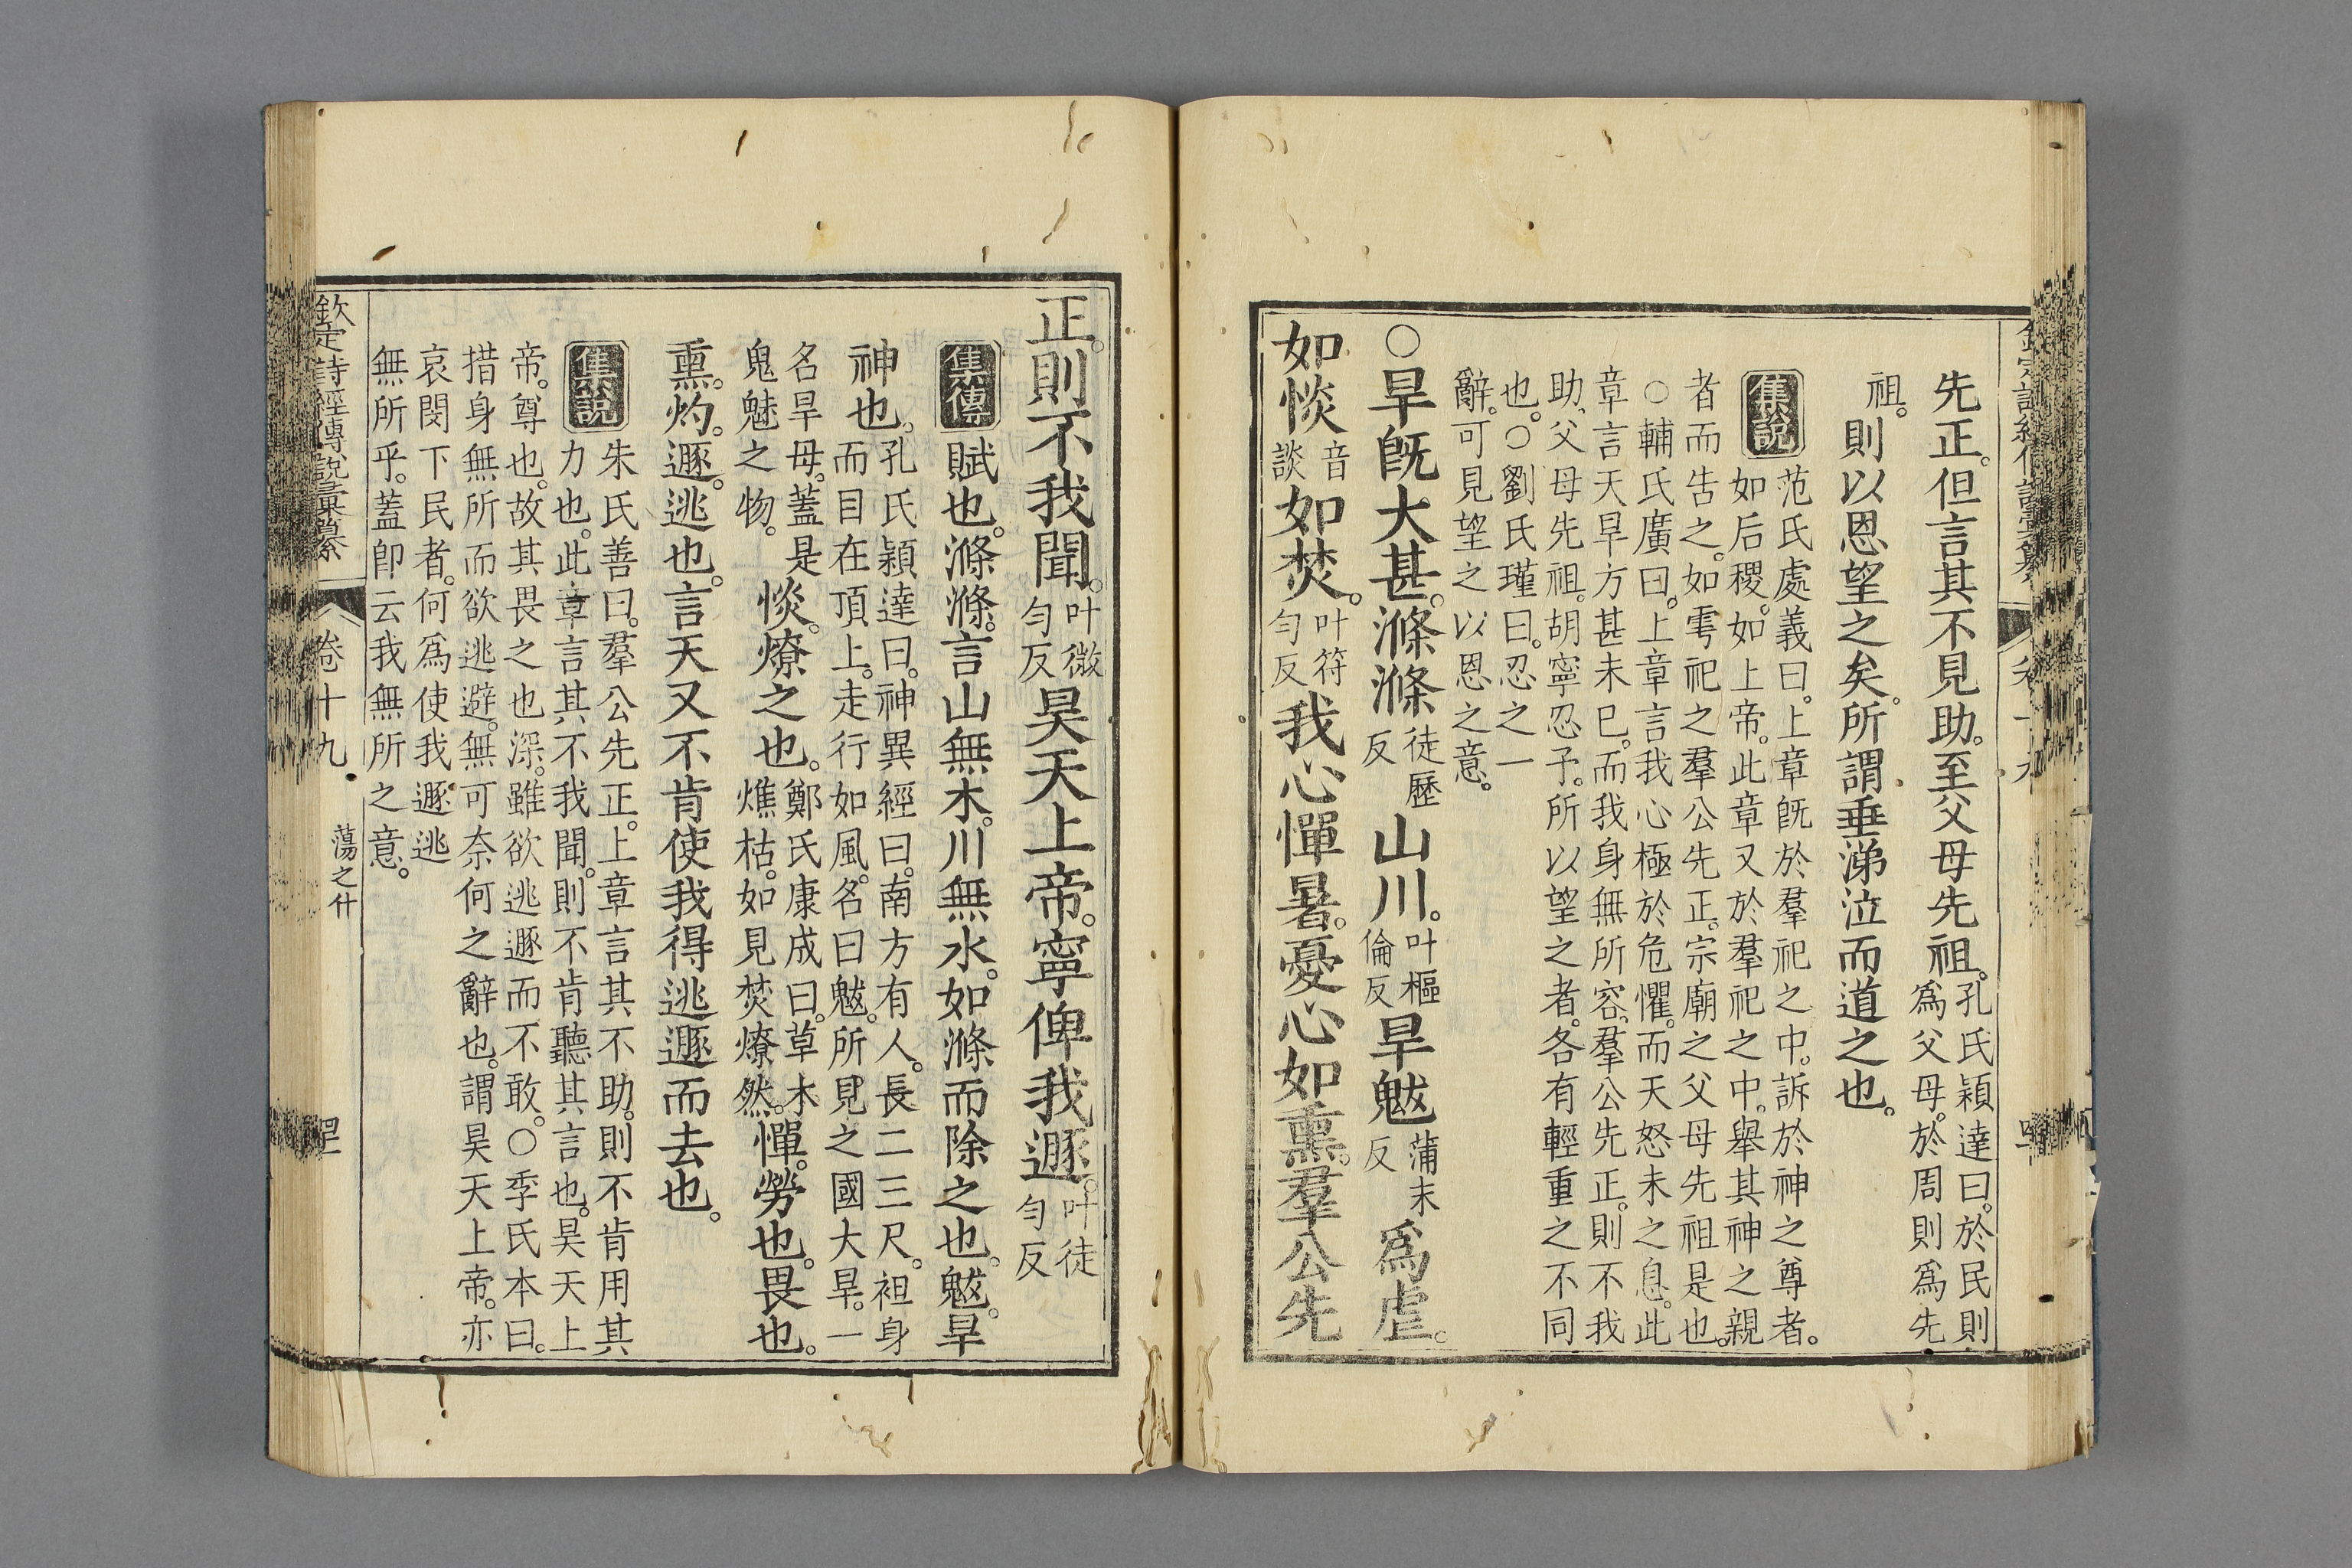 先正。但言其不見助。至父母先祖。孔氏穎達曰。於民則
爲父母。於周則爲先
祖。則以恩望之矣。所謂垂涕泣而道之也。
集說
范氏處義曰。上章旣於羣祀之中。訴於神之尊者。
如后稷。如上帝。此章又於羣祀之中。舉其神之親
者而告之。如雩祀之羣公先正。宗廟之父母先祖是也。
○輔氏廣曰。上章言我心極於危懼。而天怒未之息。此
章言天旱方甚未已。而我身無所容。羣公先正。則不我
助、父母先祖。胡寧忍予。所以望之者。各有輕重之不同
也。○劉氏瑾曰。忍之一
辭。可見望之以恩之意。
○旱旣大甚。滌滌徒歷反山川。叶樞倫反旱魃蒲末反爲虐。
如惔音談如焚。叶符勻反我心憚暑。憂心如熏。羣公先
正。則不我聞。叶微勻反昊天上帝。寧俾我遯。叶徒勻反
集傳
賦也。滌滌。言山無木。川無水。如滌而除之也。魃。旱
神也。孔氏穎達曰。神異經曰。南方有人。長二三尺。袒身
而目在頂上。走行如風。名曰魃。所見之國大旱。一
名旱母。蓋是
鬼魅之物。
惔。燎之也。鄭氏康成曰。草木
燋枯。如見焚燎然。
憚。勞也。畏也。
熏。灼。遯。逃也。言天又不肯使我得逃遯而去也。
集說
朱氏善曰。羣公先正。上章言其不助。則不肯用其
力也。此章言其不我聞。則不肯聽其言也。昊天上
帝。尊也。故其畏之也深。雖欲逃遯而不敢。○季氏本曰。
措身無所而欲逃避。無可奈何之辭也。謂昊天上帝。亦
哀閔下民者。何爲使我遯逃
無所乎。蓋卽云我無所之意。
欽定詩經傳說彙纂
卷十九
蕩之什